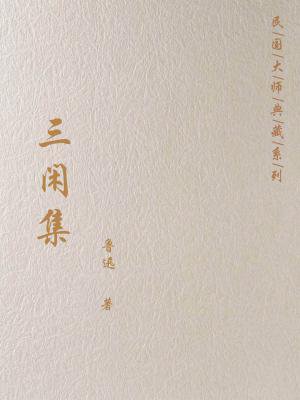 民国大师典藏系列
三闲集
鲁迅 著